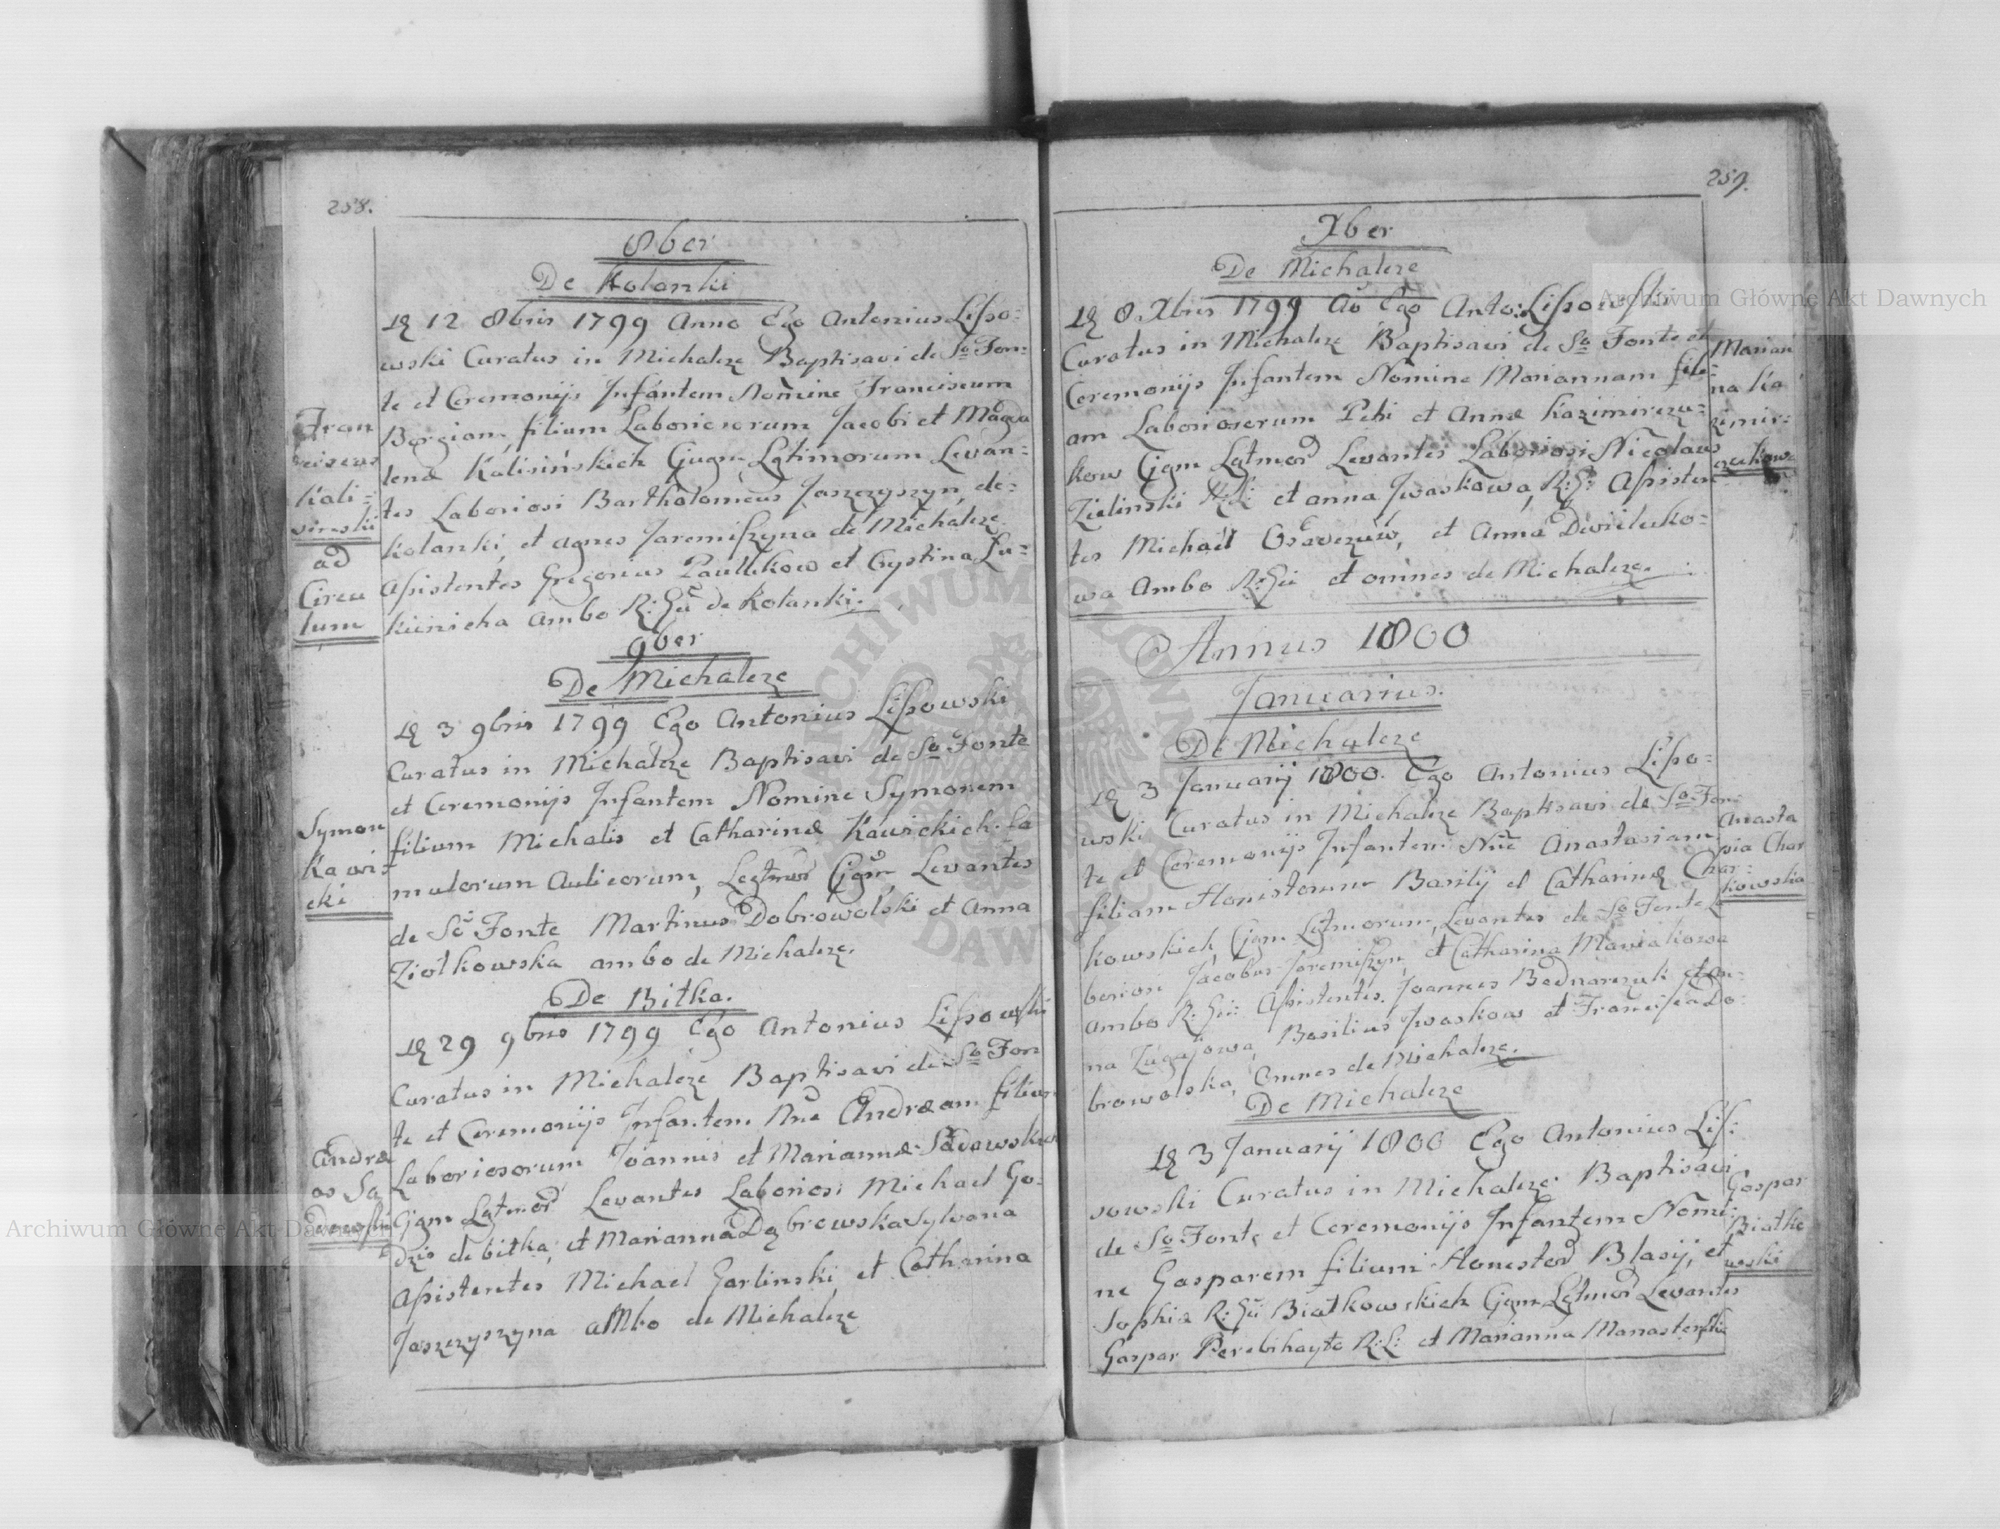 258.
8ber
De Kolanki
12 8bris 1799 Anno Ego Antonius Lisso=
wski Curatus in Michalcze Baptisavi de So Fon=
te et Ceremonijs Infantem Nomine Franciscum
Borgiam, filium Laboriosorum Jacobi et Magda
lenæ Kalisińskich Gugm Lgtimorum Levan=
tes Laboriosi Bartholomeus Jaszczyszyn, de=
Kolanki, et Agnes Jaremiszyna de Michalcze
Assistentes Gregorius Pawlikow et Crystina Lu=
kiinicha Ambo R: Gu de Kolanki.
Fran
ciscus
Kali=
sinski
ad
Circu
lum
9ber
De Michalcze
3 9bris 1799 Ego Antonius Lissowski
Curatus in Michalcze Baptisavi de So Fonte
et Ceremonijs Infantem Nomine Symonem
filium Michalis et Catharinæ Kawickich fa
mulorum Aulicorum, Legtmor Cjgm Levantes
de So Fonte Martinus Dobrowolski et Anna
Ziołkowska ambo de Michalcze.
Symon
Kawi=
cki
De Bitka.
29 9bris 1799 Ego Antonius Lissowski
Curatus in Michalcze Baptisavi de So Fon
te et Ceremonijs Infantem Nne Andræam filium
Laboriosorum Joannis et Mariannæ Sadowskich
Cjgm Lgtmor Levantes Laboriosi Michael Go=
dzis de bitka, et Marianna Dąbrowska Sylvana
Assistentes Michael Gorlinski et Catharina
Jaszczyszyna ambo de Michalcze
Andræ
as Sa
dowski
259.
Xber
De Michalcze
8 Xbris 1799 Ao Ego Anto: Lissowski
Curatus in Michalcze Baptisavi de So Fonte et
Ceremonijs Infantem Nomine Mariannam fili
am Laboriosorum Petri et Annæ Kazimirczu=
kow Cjgm Lgtmor Levantes Laboriosi Nicolaus
Zielinski R:L: et anna Jwaskowa, R:G: Assisten
tes Michael Osaverów, et Anna Dwiluko=
wa Ambo R:Gu et omnes de Michalcze.
Marian
na Ka
zimir=
czukow
Annus 1800
Januarius.
De Michalcze
3 Januarij 1800. Ego Antonius Lisso=
wski Curatus in Michalcze Baptisavi de So Fon=
te et Ceremonijs Infantem Nne Anastasiam
filiam Honistorum Basilij et Catharinæ Char=
kowskich, Cjgm Lgtmorum, Levantes de So Fonte La
boriosi Jacobus Jaremiszyn, et Catharina Maniakowa
Ambo R: Gu: Assistentes. Joannes Bednarczuk et An=
na Lugasowa, Basilius Jwaskow et Francisca Do=
browolska, Omnes de Michalcze.
Anasta
sia Char
kowska
De Michalcze
3 Januarij 1800 Ego Antonius Lis=
sowski Curatus in Michalcze Baptisavi
de So Fonte et Ceremonijs Infantem Nomi=
ne Gasparem filium Honestor Blasij, et
Sophiæ R:Gu Białkowskich Cjgm Lgtmor Levantes
Gaspar Perebihayto R:L: et Marianna Manasterska
Gaspar
Białko
wski
Archiwum Główne Akt Dawnych
Archiwum Główne Akt Dawnych
ARCHIWUM GŁÓWNE AKT DAWNYCH